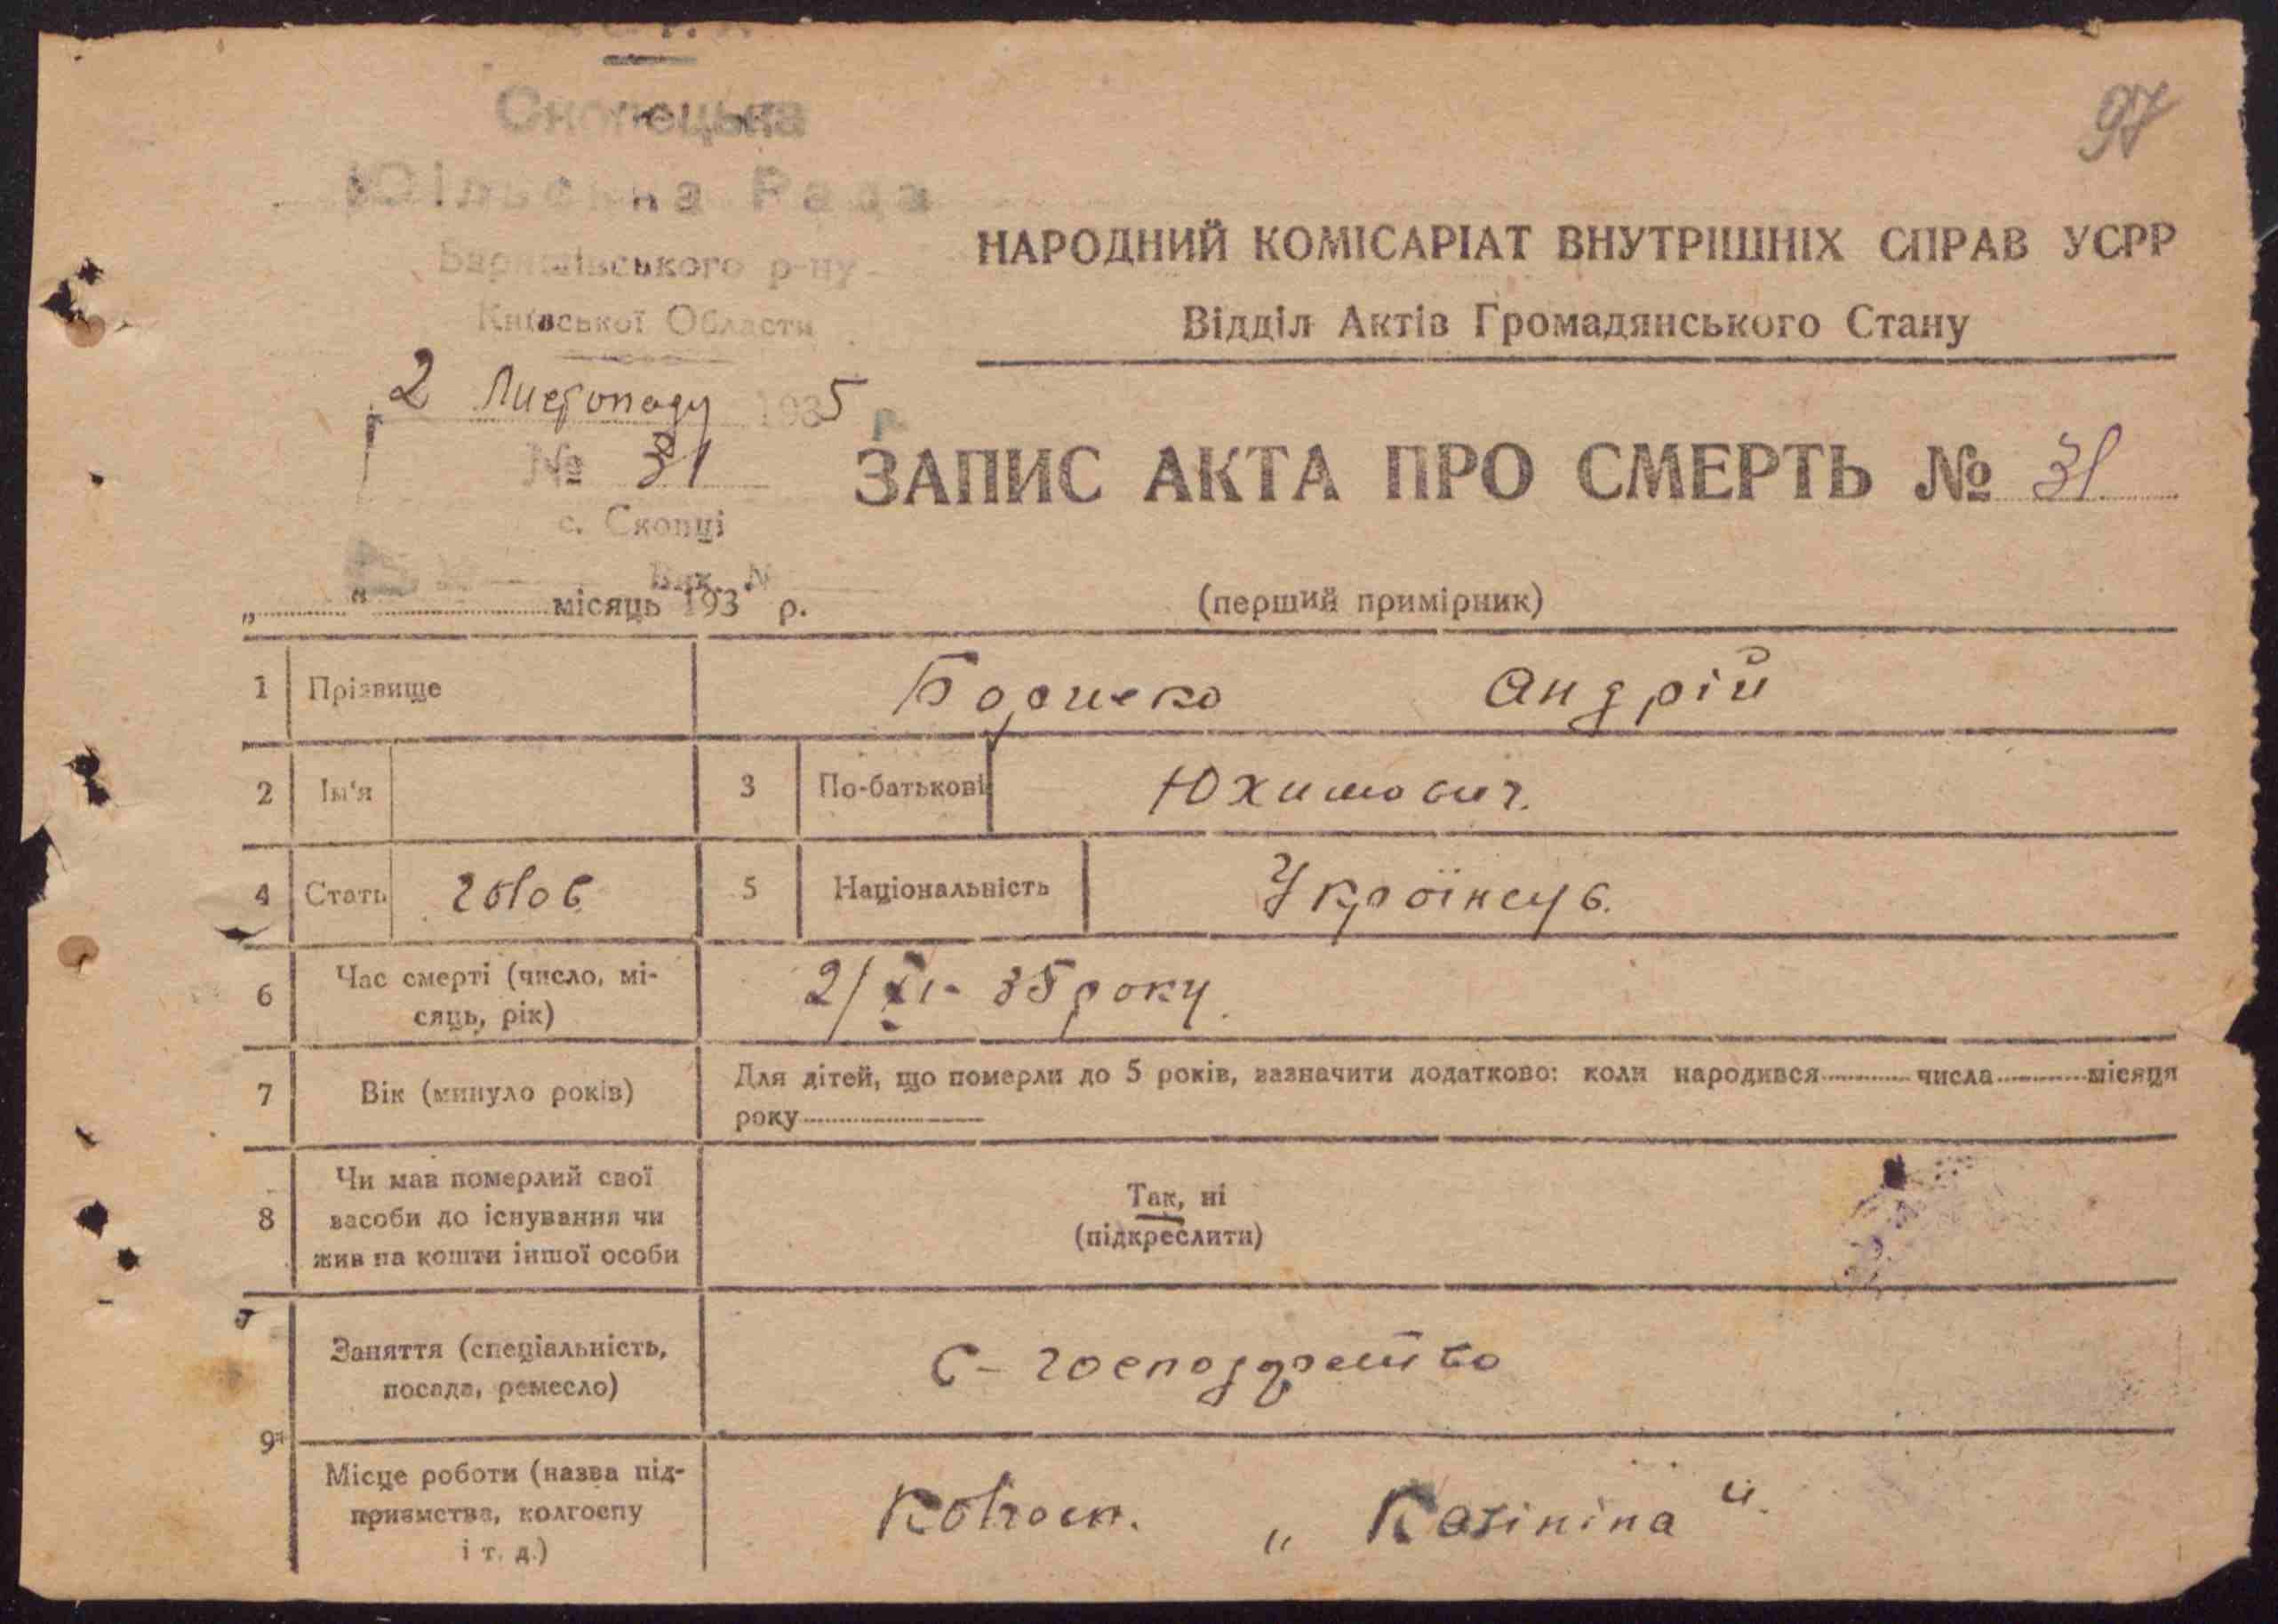 97
Скопецька
Сільська Рада
Баришівського р-ну
Київської Области
НАРОДНИЙ КОМІСАРІАТ ВНУТРІШНІХ СПРАВ УСРР
Відділ Актів Громадянського Стану
2 Листопаду 1935 р.
№ 31
ЗАПИС АКТА ПРО СМЕРТЬ № 31
с. Скопці
Вик. №
„ “ місяць 193 р.
(перший примірник)
1 Прізвище Андрій
2 Ім'я 3 По-батькові Юхимович.
4 Стать 5 Національність Українець.
6 Час смерті (число, мі-
сяць, рік) 2/XI- 35 року.
7 Вік (минуло років) Для дітей, що померли до 5 років, зазначити додатково: коли народився числа місяця
року
8 Чи мав померлий свої
засоби до існування чи
жив на кошти іншої особи
Так, ні
(підкреслити)
9 Заняття (спеціальність,
посада, ремесло) С-господарство
Місце роботи (назва під-
приємства, колгоспу
і т. д.) Колгосп. „ Калініна “.